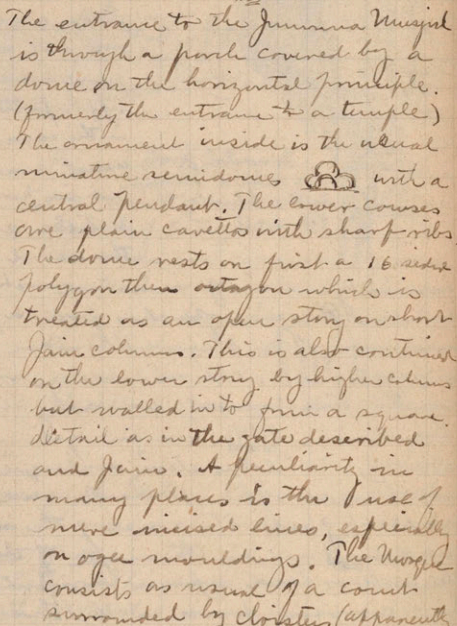 The entrance to the Jumma Musjid
is through a porch covered by a
dome on the horizontal principle.
(formerly the entrance to a temple)
The ornament inside is the usual
miniature semidomes with a
central pendant. The lower courses
are plain cavettos with sharp ribs
The dome rests on first a 16 sided
polygon then octagon which is
treated as an open story on short
Jain columns. This is also continued
on the lower story by higher columns
but walled in to form a square.
detail as in the gate described
and Jain. A peculiarity in
many places is the use of
mere incised lines, especially
on ogee mouldings. The Musjid
consists as usual of a court
surrounded by cloisters (apparently